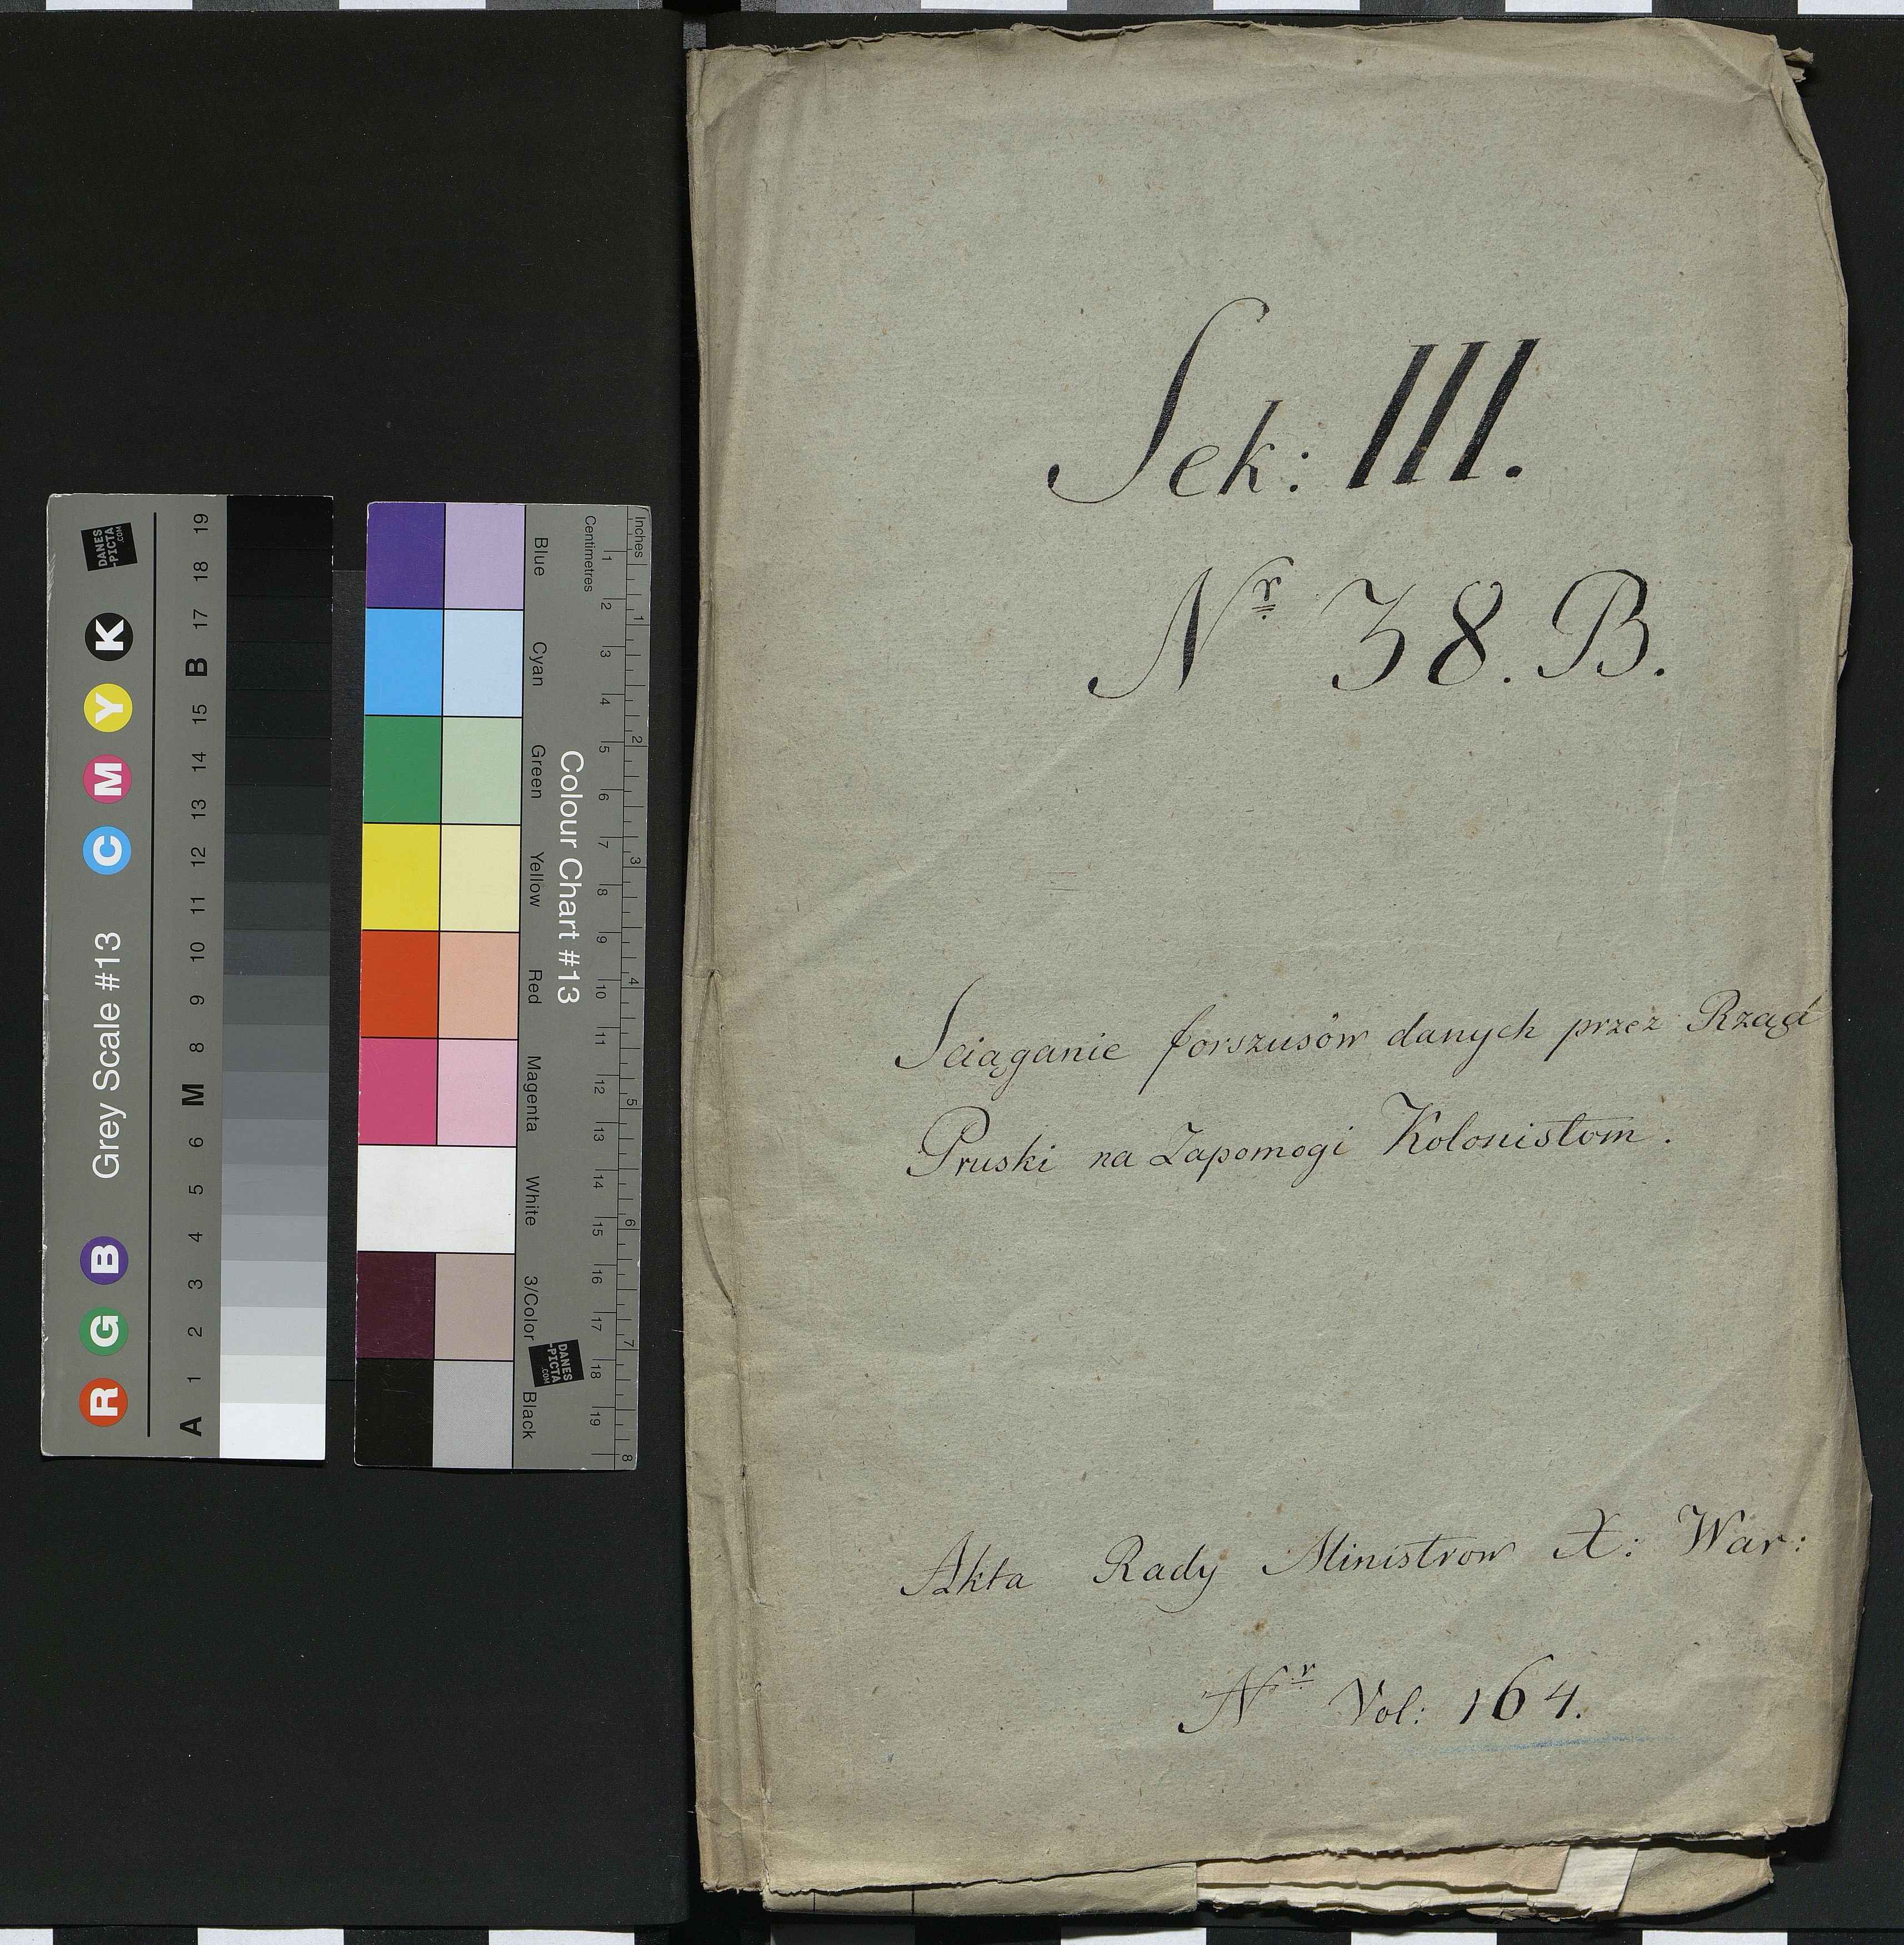 Sek: III.
Nr 38. B.
Sciąganie forszusów danych przez Rząd
Pruski na Zapomogi Kolonistom.
Akta Rady Ministrow X: War:
Nr Vol: 164.
Grey Scale #13
R G B C M Y K
A 1 2 3 4 5 6 M 8 9 10 11 12 13 14 15 B 17 18 19
DANES
-PICTA
.COM
Colour Chart #13
Blue Cyan Green Yellow Red Magenta White 3/Color Black
Centimetres 1 2 3 4 5 6 7 8 9 10 11 12 13 14 15 16 17 18 19
Inches 1 2 3 4 5 6 7 8
DANES
-PICTA
.COM